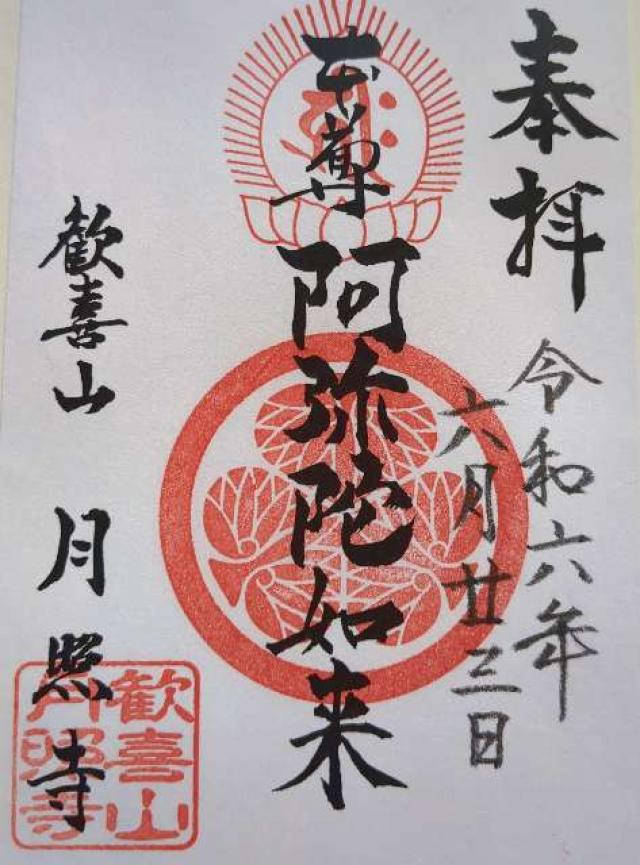 奉拝
令和六年
六月廿三日
本尊 阿弥陀如来
歓喜山 月照寺
歓喜山
月照寺